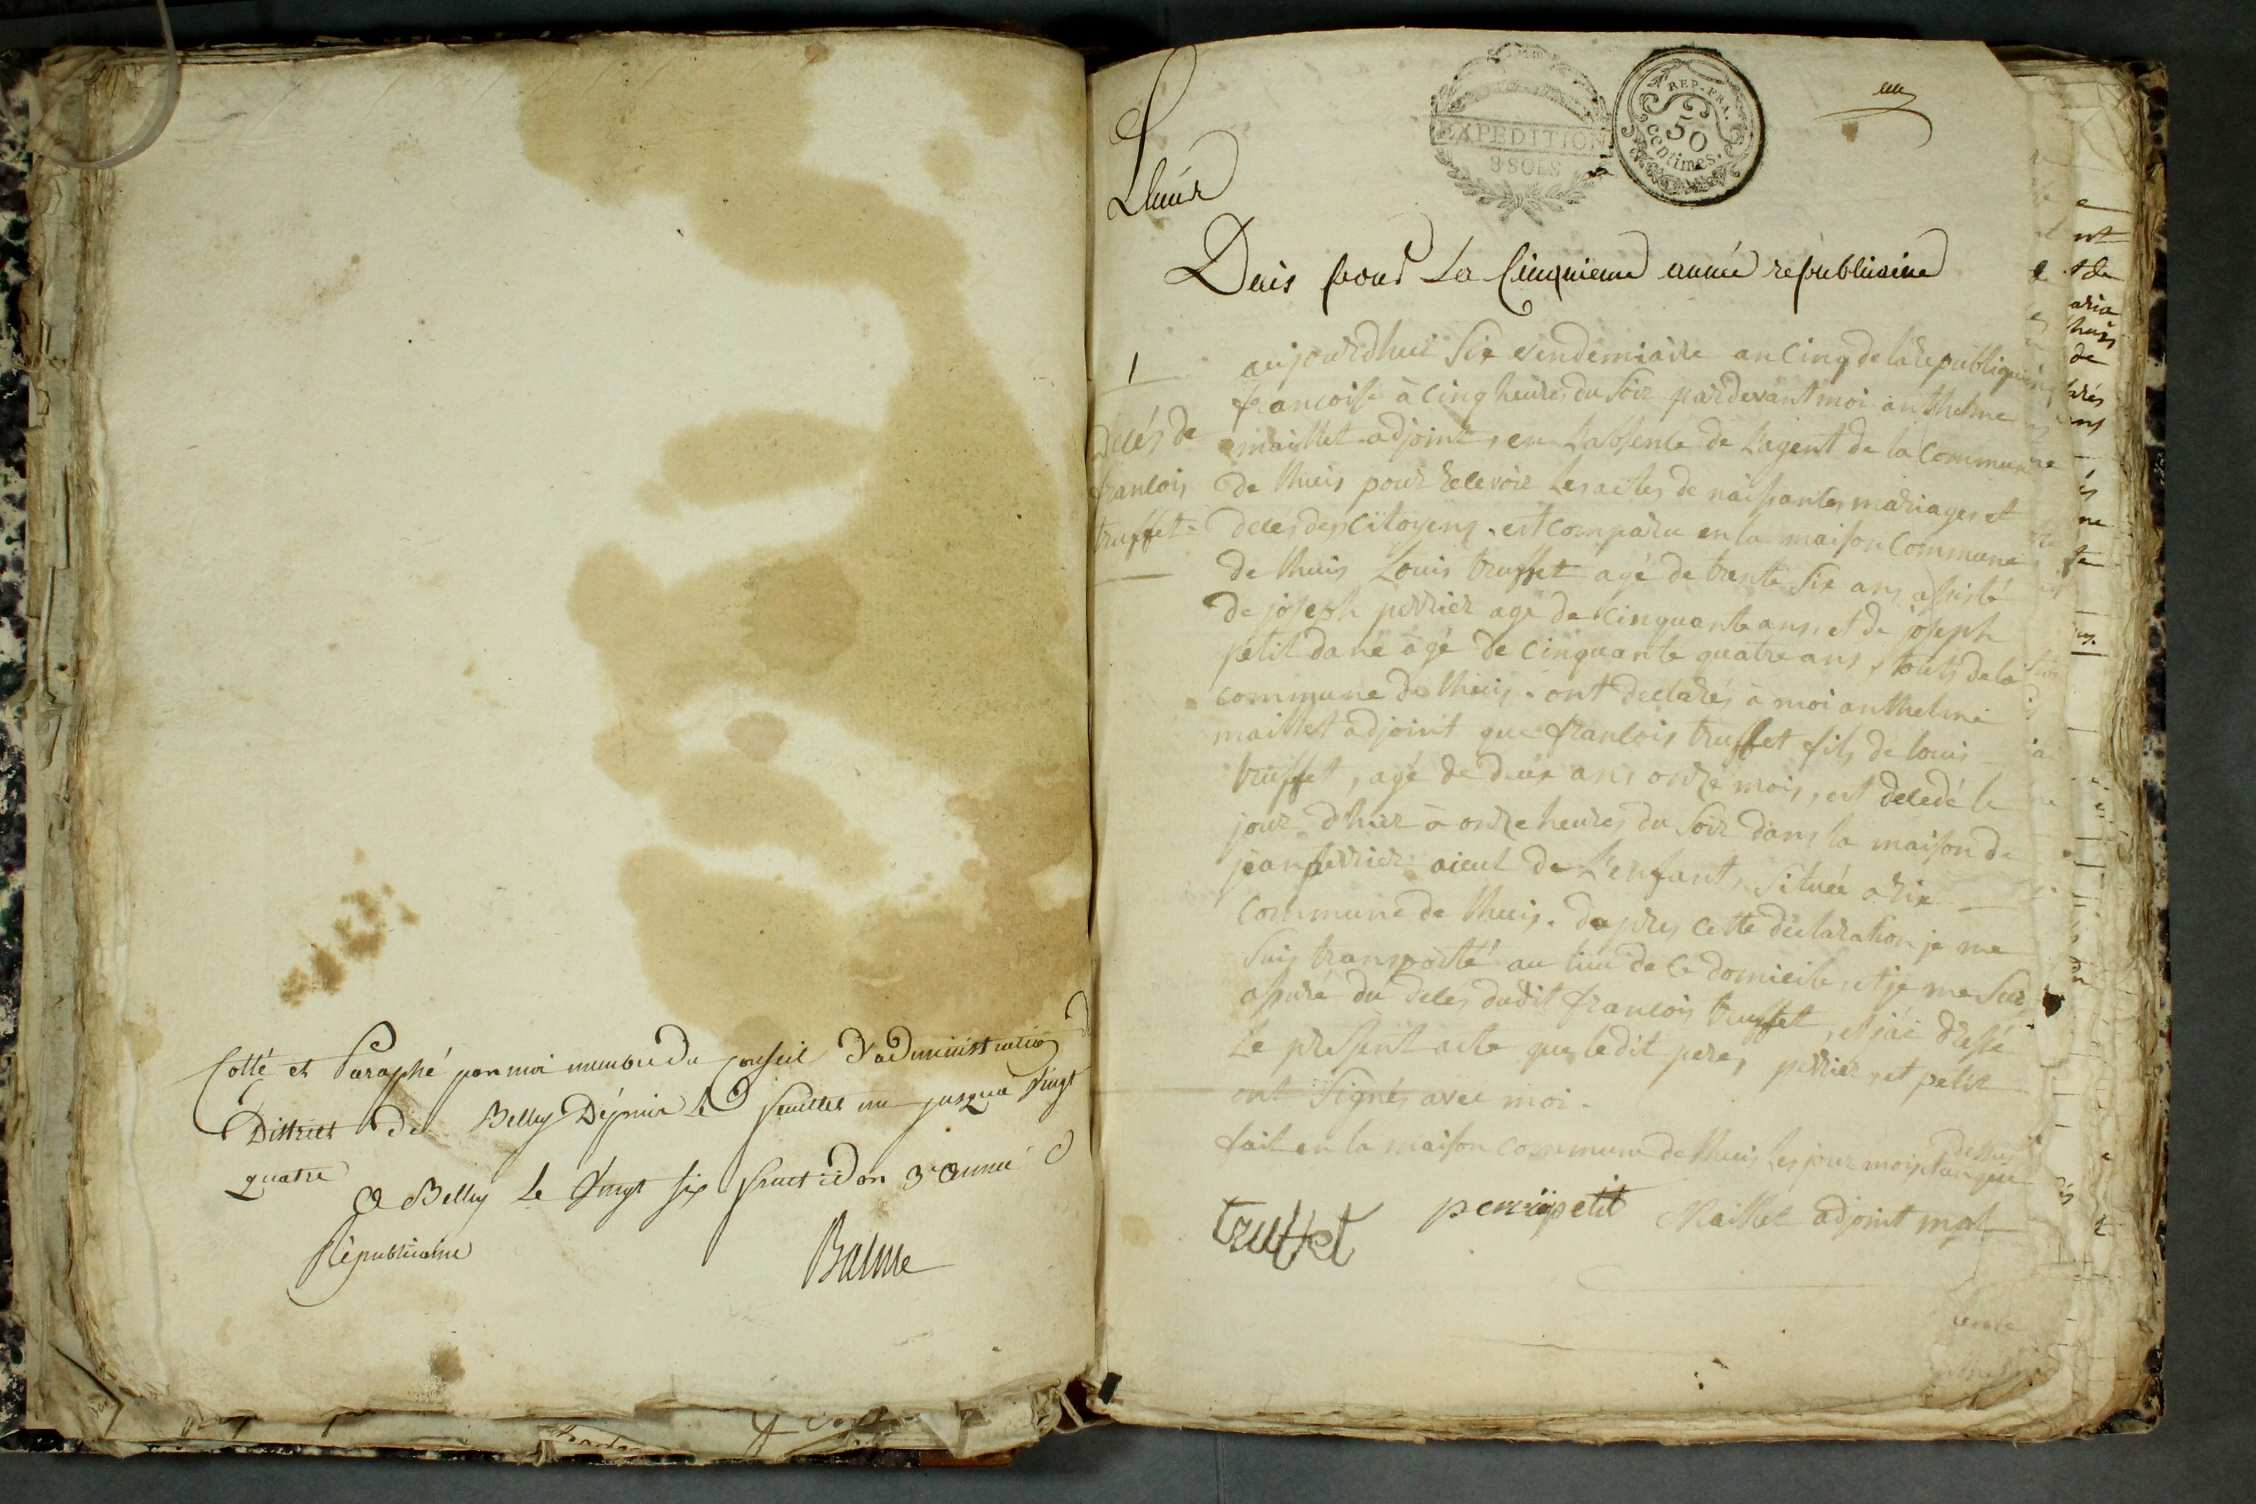 Cotté et Paraphé par moi membre du conseil d'administration
District de Belley Depuis le feuillet un jusqua vingt
quatre
A Belley le vingt six fructidor 3e année
Republicaine
Balme
un
EXPEDITION
8 SOLS
REP. FRA.
50
centimes.
Lhuis
Deces pour La Cinquieme année republicaine
1
decés de
francois
truffet
aujourdhuis six vendemiaire an cinq de la republique
francoise à cinq heures du soir pardevant moi anthelme
maillet adjoint, en l'absence de l'agent de la commune
de lhuis pour recevoir les actes de naissances mariages et
decés des citoyens. est comparu en la maison commune
de lhuis Louis truffet agé de trente six ans assisté
de joseph perrier agé de cinquante ans, et de joseph
petit dané agé de cinquante quatre ans, touts de la
commune de lhuis. ont declarés à moi anthelme
maillet adjoint que francois truffet fils de louis
truffet, agé de deux ans onze mois, est decedé le
jour d'hier à onze heures du soir dans la maison de
jean perrier aieul de l'enfant, située a rix
commune de lhuis. dapres cette declaration je me
suis transporté au lieu de ce domicile et je me suis
assuré du decés dudit francois truffet, et j'ai dressé
le present acte que ledit pere, perrier, et petit
ont signés avec moi.
fait en la maison commune de lhuis les jour mois et an que dessus
truffet perrié petit Maillet adjoint mpl